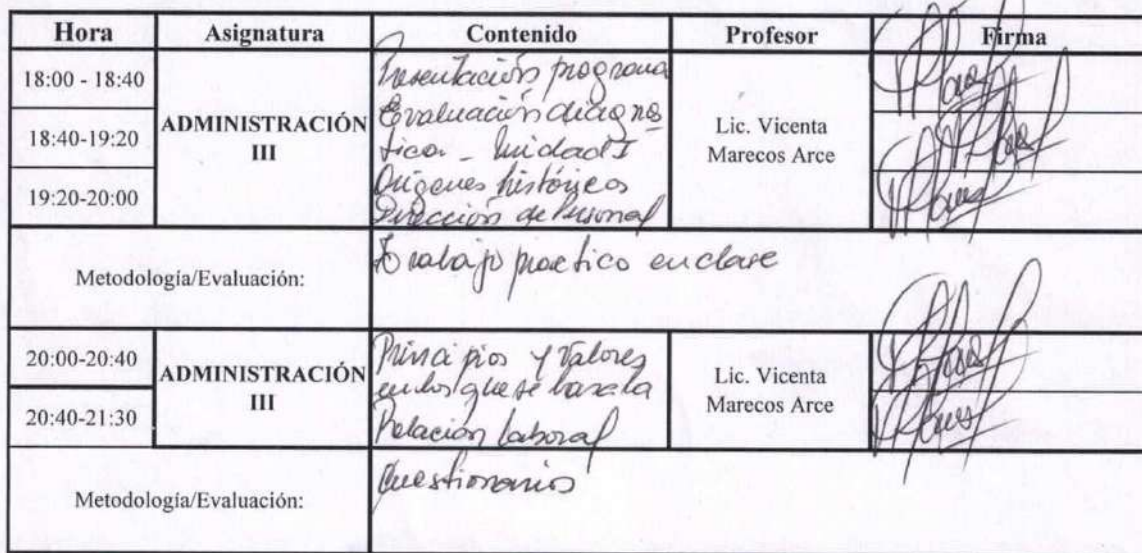 Hora Asignatura Contenido Profesor Firma
18:00 - 18:40
18:40-19:20
19:20-20:00
ADMINISTRACIÓN
III
Presentación programa
Evaluación diagnós
tica. - Unidad I
Orígenes históricos
Dirección de Personal
Lic. Vicenta
Marecos Arce
Metodología/Evaluación:
Trabajo practico en clase
20:00-20:40
20:40-21:30
ADMINISTRACIÓN
III
Principios y Valores
en los que se basa la
Relación laboral
Lic. Vicenta
Marecos Arce
Metodología/Evaluación:
Cuestionarios